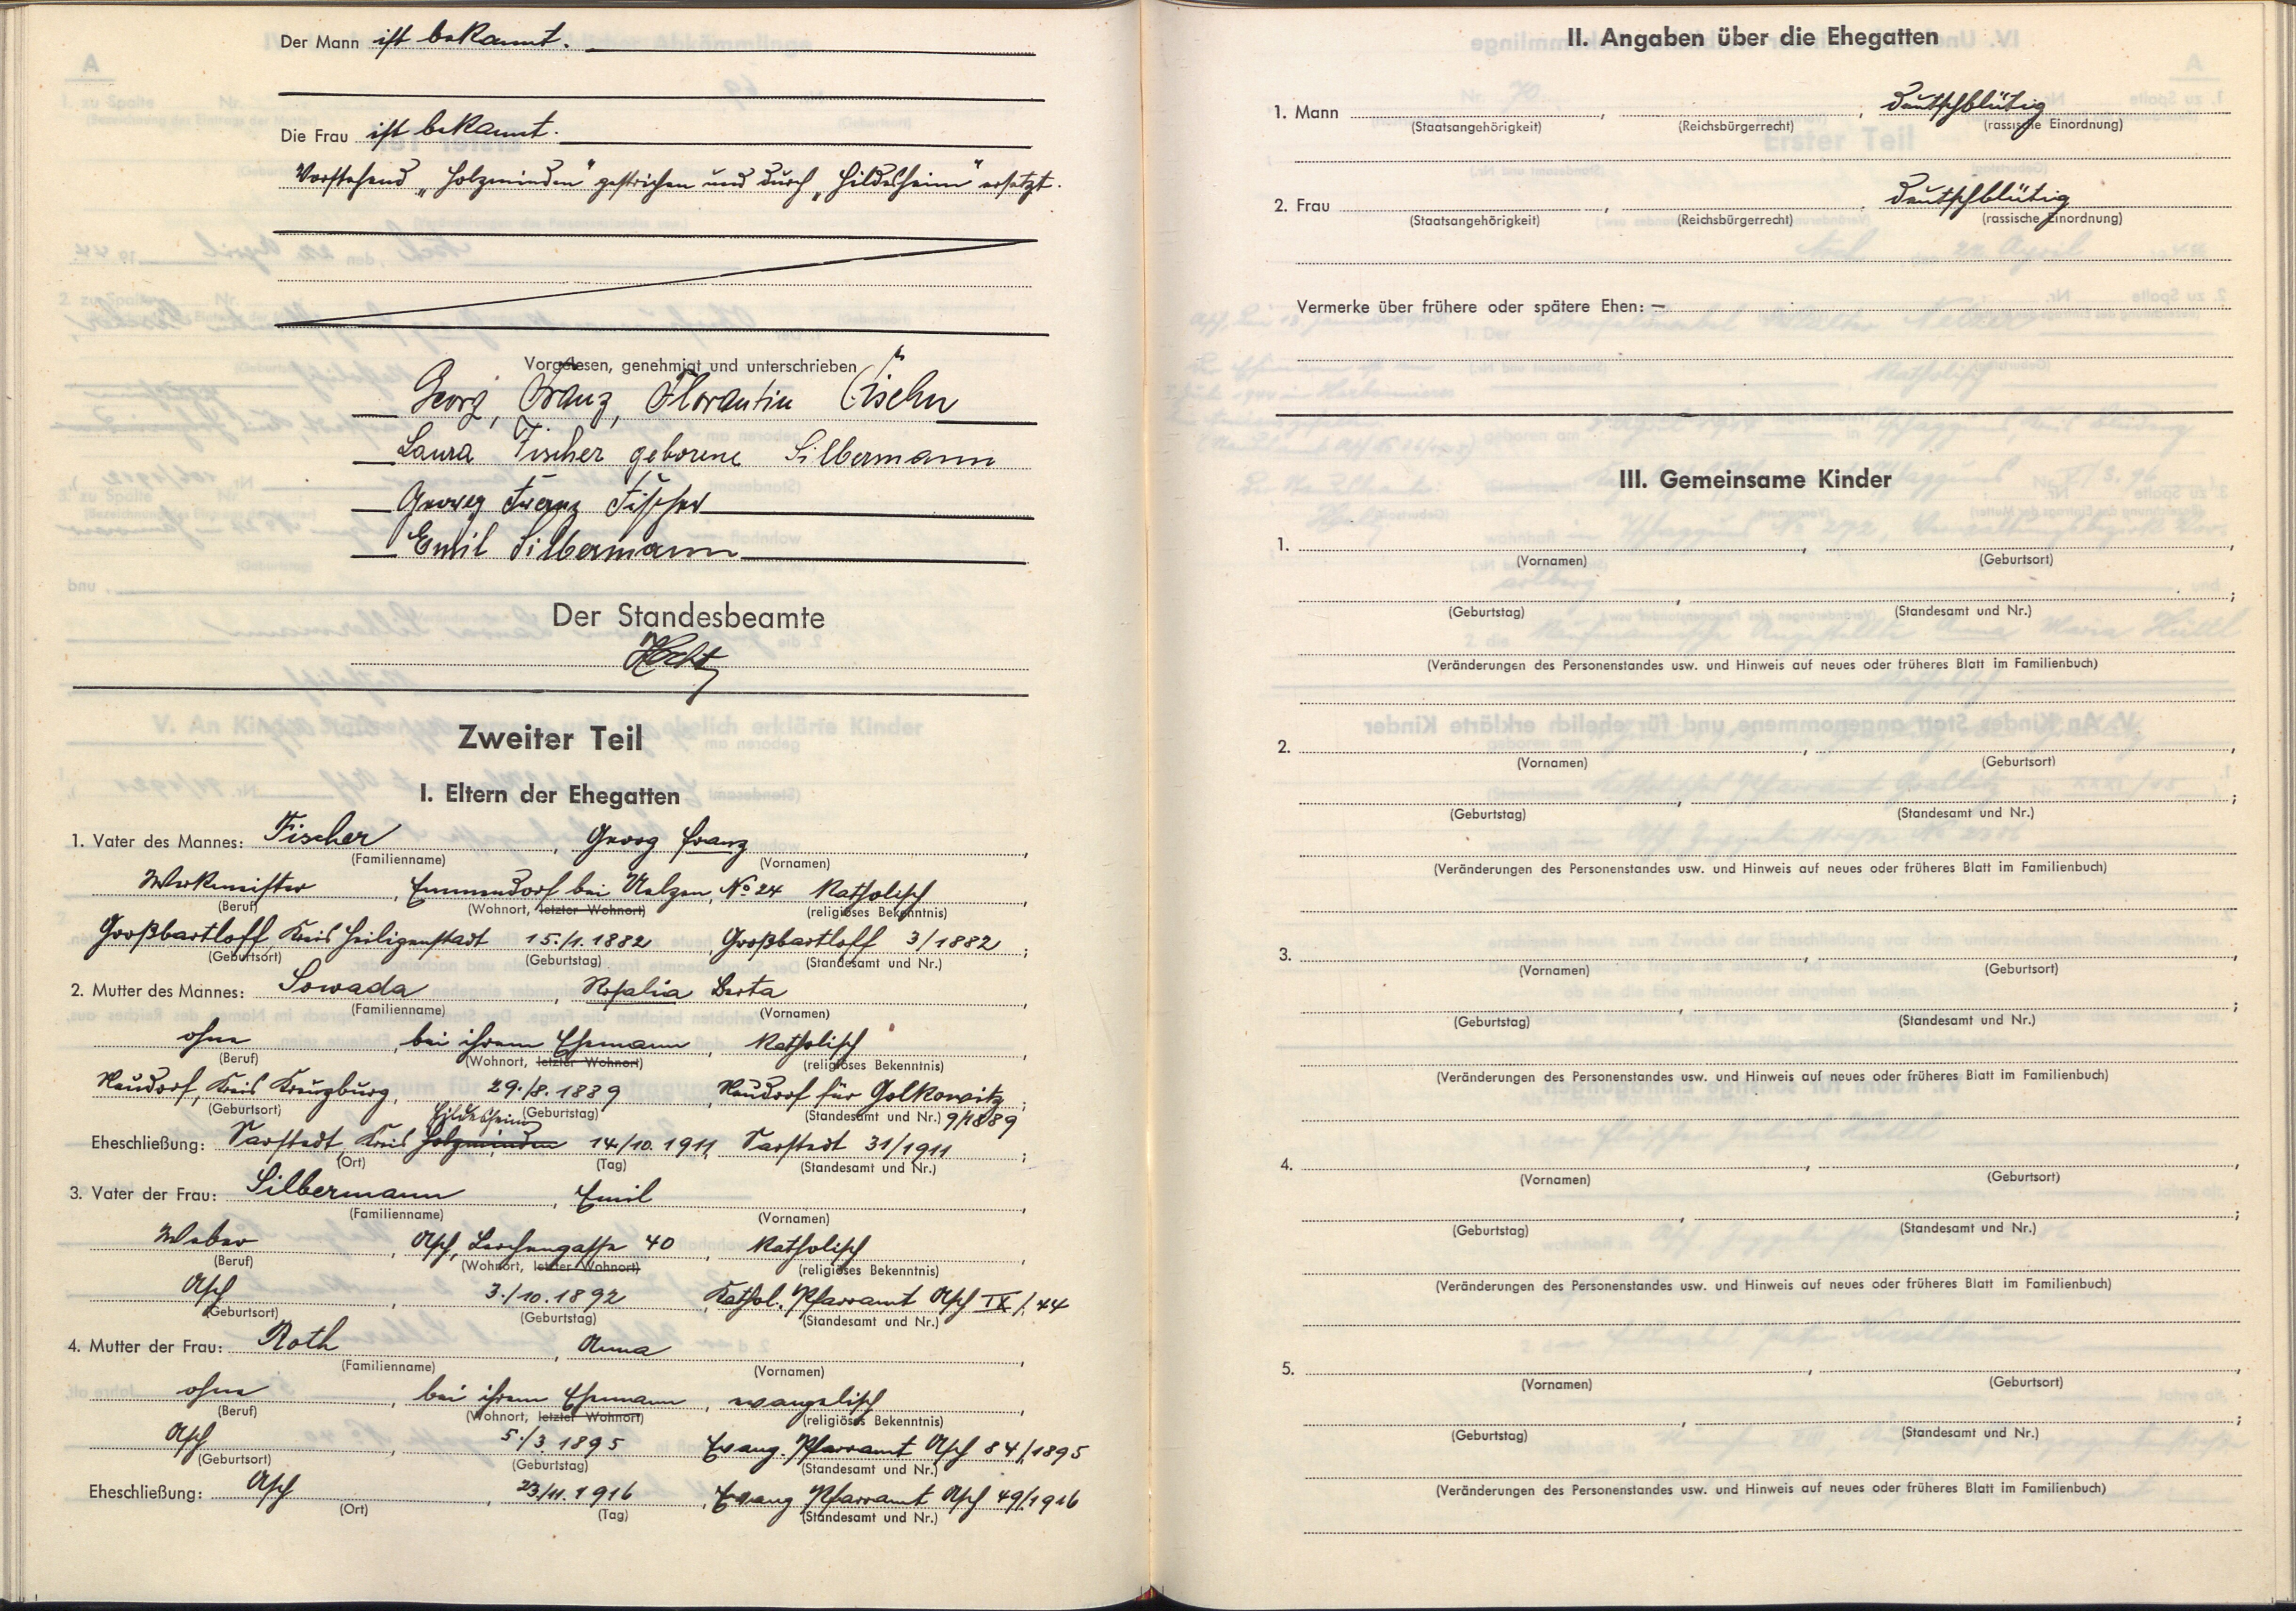 Der Mann ist bekannt.
Die Frau ist bekannt.
Vorstehend „Holzminden" gestrichen und durch „Hildesheim" ersetzt.
Vorgelesen, genehmigt und unterschrieben
Georg, Franz, Florantin Fischer
Laura Fischer geborene Silbermann
Georg Franz Fischer
Emil Silbermann
Der Standesbeamte
Zweiter Teil
I. Eltern der Ehegatten
1. Vater des Mannes: Fischer, Georg Franz,
(Familienname) (Vornamen)
Werkmeister, Emmendorf bei Uelzen, No 24 Katholisch,
(Beruf) (Wohnort, letzter Wohnort) (religiöses Bekenntnis)
Großbartloff, Kreis Heiligenstadt 15./1. 1882, Großbartloff 3/1882;
(Geburtsort) (Geburtstag) (Standesamt und Nr.)
2. Mutter des Mannes: Sowada, Rosalia Berta,
(Familienname) (Vornamen)
ohne, bei ihrem Ehemann, Katholisch,
(Beruf) (Wohnort, letzter Wohnort) (religiöses Bekenntnis)
Neudorf, Kreis Kreuzburg, 29./8. 1889, Neudorf für Golkowitz;
(Geburtsort) (Geburtstag) (Standesamt und Nr.) 9/1889
Hildesheim
Eheschließung: Sarstedt, Kreis Holzminden 14./10. 1911, Sarstedt 31/1911;
(Ort) (Tag) (Standesamt und Nr.)
3. Vater der Frau: Silbermann, Emil,
(Familienname) (Vornamen)
Weber, Asch, Lerchengasse 40, Katholisch,
(Beruf) (Wohnort, letzter Wohnort) (religiöses Bekenntnis)
Asch, 3./10. 1892, Kathol. Pfarramt Asch IX/44
(Geburtsort) (Geburtstag) (Standesamt und Nr.)
4. Mutter der Frau: Roth, Anna,
(Familienname) (Vornamen)
ohne, bei ihrem Ehemann, evangelisch,
(Beruf) (Wohnort, letzter Wohnort) (religiöses Bekenntnis)
Asch, 5./3. 1895 Evang. Pfarramt Asch 84/1895
(Geburtsort) (Geburtstag) (Standesamt und Nr.)
Eheschließung: Asch, 23./11. 1916, Evang Pfarramt Asch 49/1916
(Ort) (Tag) (Standesamt und Nr.)
II. Angaben über die Ehegatten
1. Mann, , deutschblütig
(Staatsangehörigkeit) (Reichsbürgerrecht) (rassische Einordnung)
2. Frau, , deutschblütig
(Staatsangehörigkeit) (Reichsbürgerrecht) (rassische Einordnung)
Vermerke über frühere oder spätere Ehen: —
III. Gemeinsame Kinder
1. , ,
(Vornamen) (Geburtsort)
, ;
(Geburtstag) (Standesamt und Nr.)
(Veränderungen des Personenstandes usw. und Hinweis auf neues oder früheres Blatt im Familienbuch)
2. , ,
(Vornamen) (Geburtsort)
, ;
(Geburtstag) (Standesamt und Nr.)
(Veränderungen des Personenstandes usw. und Hinweis auf neues oder früheres Blatt im Familienbuch)
3. , ,
(Vornamen) (Geburtsort)
, ;
(Geburtstag) (Standesamt und Nr.)
(Veränderungen des Personenstandes usw. und Hinweis auf neues oder früheres Blatt im Familienbuch)
4. , ,
(Vornamen) (Geburtsort)
, ;
(Geburtstag) (Standesamt und Nr.)
(Veränderungen des Personenstandes usw. und Hinweis auf neues oder früheres Blatt im Familienbuch)
5. , ,
(Vornamen) (Geburtsort)
, ;
(Geburtstag) (Standesamt und Nr.)
(Veränderungen des Personenstandes usw. und Hinweis auf neues oder früheres Blatt im Familienbuch)